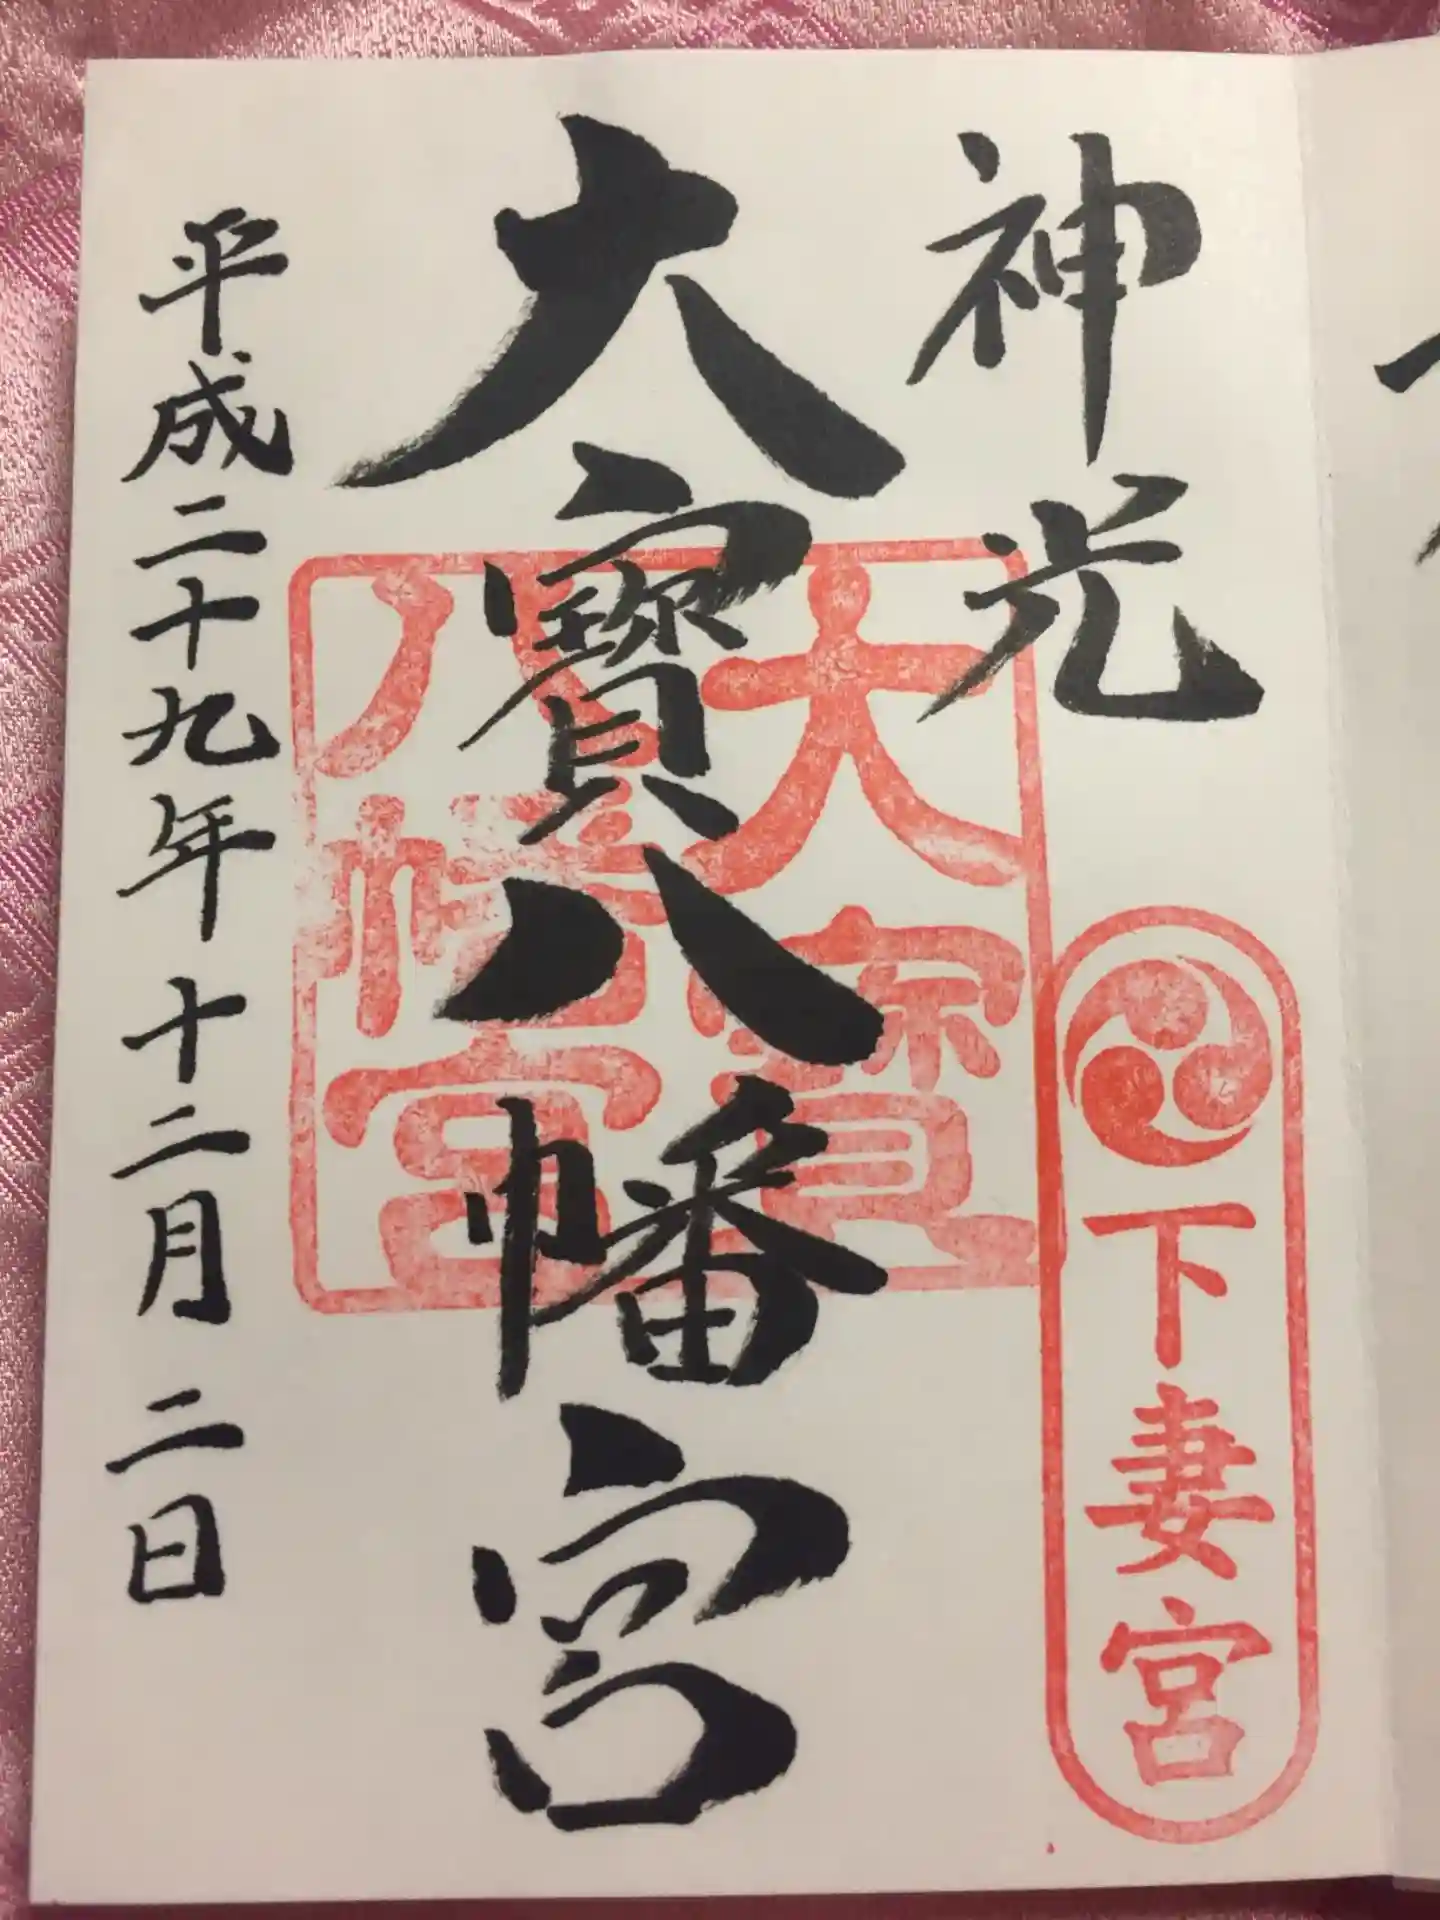 神光
下妻宮
大寳八幡宮
大寳
八幡宮
平成二十九年十二月二日